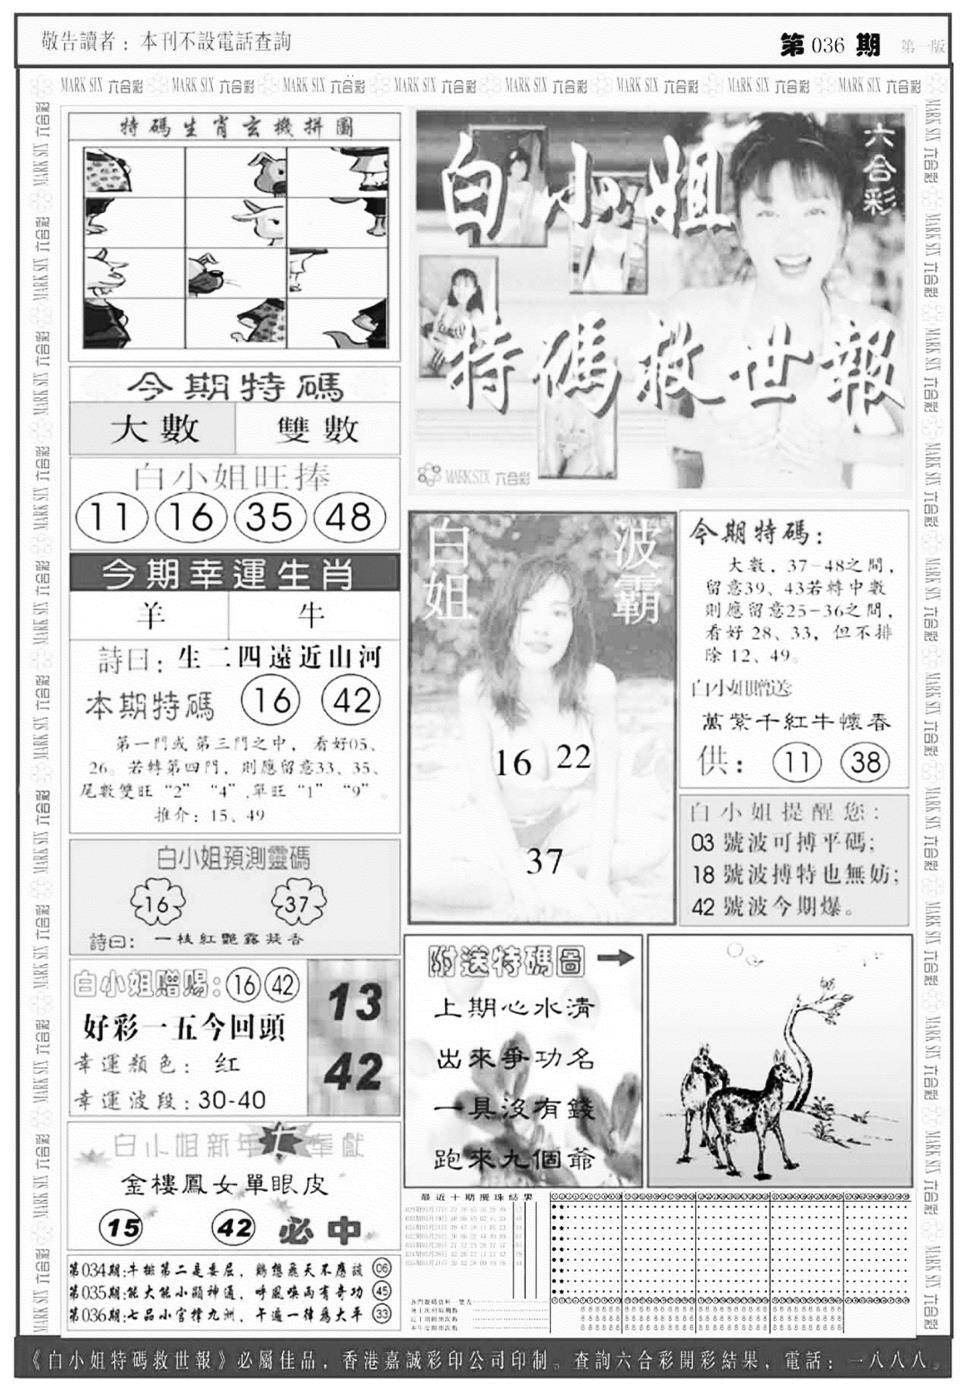 敬告讀者：本刊不設電話查詢
第 036 期 第一版
MARK SIX 六合彩 MARK SIX 六合彩 MARK SIX 六合彩 MARK SIX 六合彩 MARK SIX 六合彩 MARK SIX 六合彩 MARK SIX 六合彩 MARK SIX 六合彩
特碼生肖玄機拼圖
今期特碼
大數 雙數
白小姐旺捧
11 16 35 48
今期幸運生肖
羊 牛
詩曰：生二四遠近山河
本期特碼 16 42
第一門或第三門之中，看好05、
26。若轉第四門，則應留意33、35、
尾數雙旺“2”“4”,單旺“1”“9”。
推介：15、49
白小姐預測靈碼
16 37
詩曰：一枝紅艷露凝香
白小姐贈賜：16 42
好彩一五今回頭
幸運顏色：紅
幸運波段：30-40
13
42
白小姐新年 奉獻
金樓鳳女單眼皮
15 42 必中
第034期:牛搬第二是委屈，鷄想飛天不應該 06
第035期:能大能小顯神通，呼風喚雨有奇功 45
第036期:七品小官擇九洲，午遍一律為大平 33
白小姐
六合彩
特碼救世報
MARK SIX 六合彩
白姐
波霸
16 22
37
今期特碼：
大數，37-48之間，
留意39、43若轉中數
則應留意25-36之間，
看好 28、33，但不排
除 12、49。
白小姐贈送
萬紫千紅牛懷春
供：11 38
白小姐提醒您：
03 號波可搏平碼；
18 號波搏特也無妨；
42 號波今期爆。
附送特碼圖
上期心水清
出來爭功名
一具沒有錢
跑來九個爺
最近十期攪珠結果
《白小姐特碼救世報》必屬佳品，香港嘉誠彩印公司印制。查詢六合彩開彩結果，電話：一八八八。